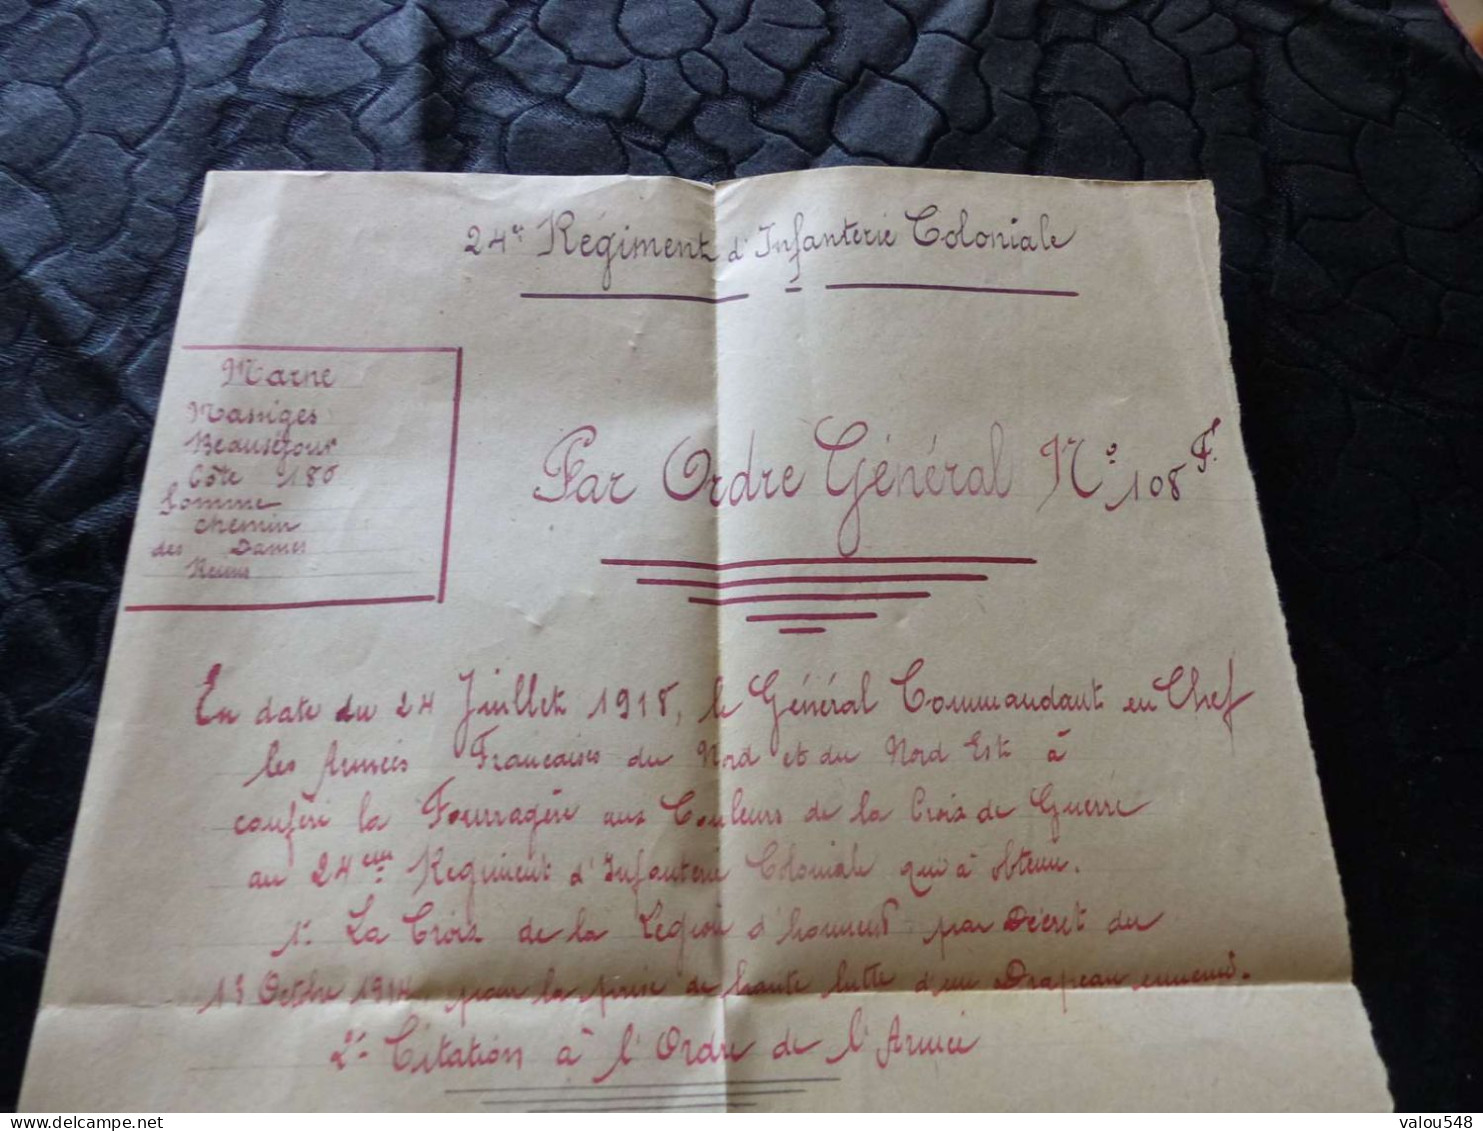 24e Régiment d'Infanterie Coloniale
Marne
Massiges
Beauséjour
Côte 180
Somme
Chemin
des Dames
Reims
Par Ordre Général No 108 F.
En date du 24 Juillet 1918, le Général Commandant en Chef
les Armées Françaises du Nord et du Nord Est à
conféré la Fourragère aux Couleurs de la Croix de Guerre
au 24eme Regiment d'Infanterie Coloniale qui à obtenu.
1º La Croix de la Légion d'honneur par Décret du
13 Octobre 1914 pour la prise de haute lutte d'un Drapeau ennemi.
2º Citation à l'Ordre de l'Armée
delcampe.net
valou548